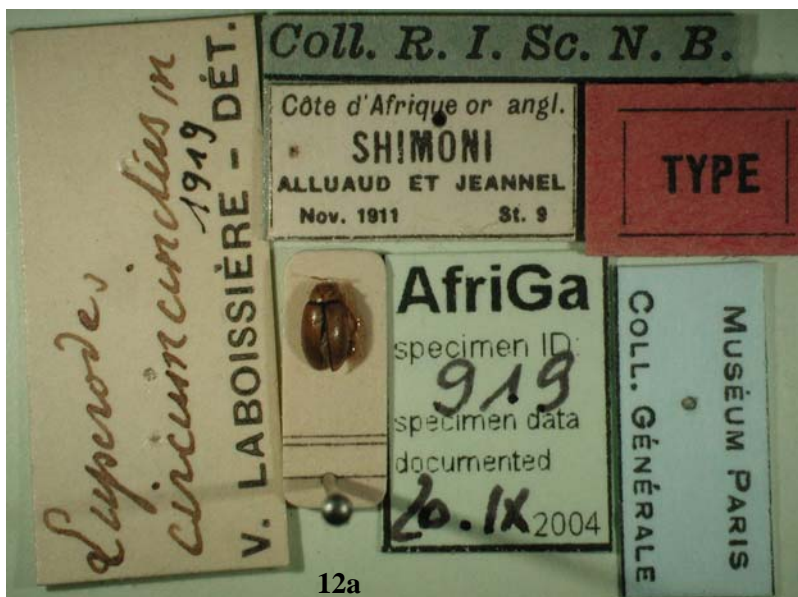 Luperodes
circumcinctus m
1919
V. LABOISSIÈRE – DÉT.
Coll. R. I. Sc. N. B.
Côte d'Afrique or angl.
SHIMONI
ALLUAUD ET JEANNEL
Nov. 1911 St. 9
TYPE
AfriGa
specimen ID:
919
specimen data
documented
20.IX 2004
MUSÉUM PARIS
COLL. GÉNÉRALE
12a